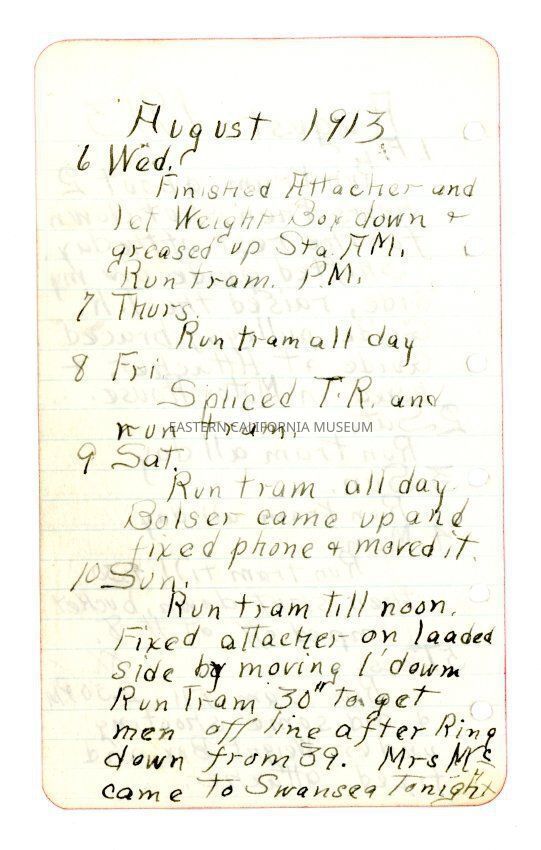 August 1913
6 Wed.
Finished Attacher and
let Weight Box down +
greased up Sta. AM.
Run tram. PM.
7 Thurs.
Run tram all day
8 Fri.
Spliced T.R. and
run tram.
EASTERN CALIFORNIA MUSEUM
9 Sat.
Run tram all day.
Bolser came up and
fixed phone + moved it.
10 Sun.
Run tram till noon.
Fixed attacher on loaded
side by moving 1' down
Run Tram 30" to get
men off line after Ring
down from 39. Mrs Mc
came to Swansea Tonight